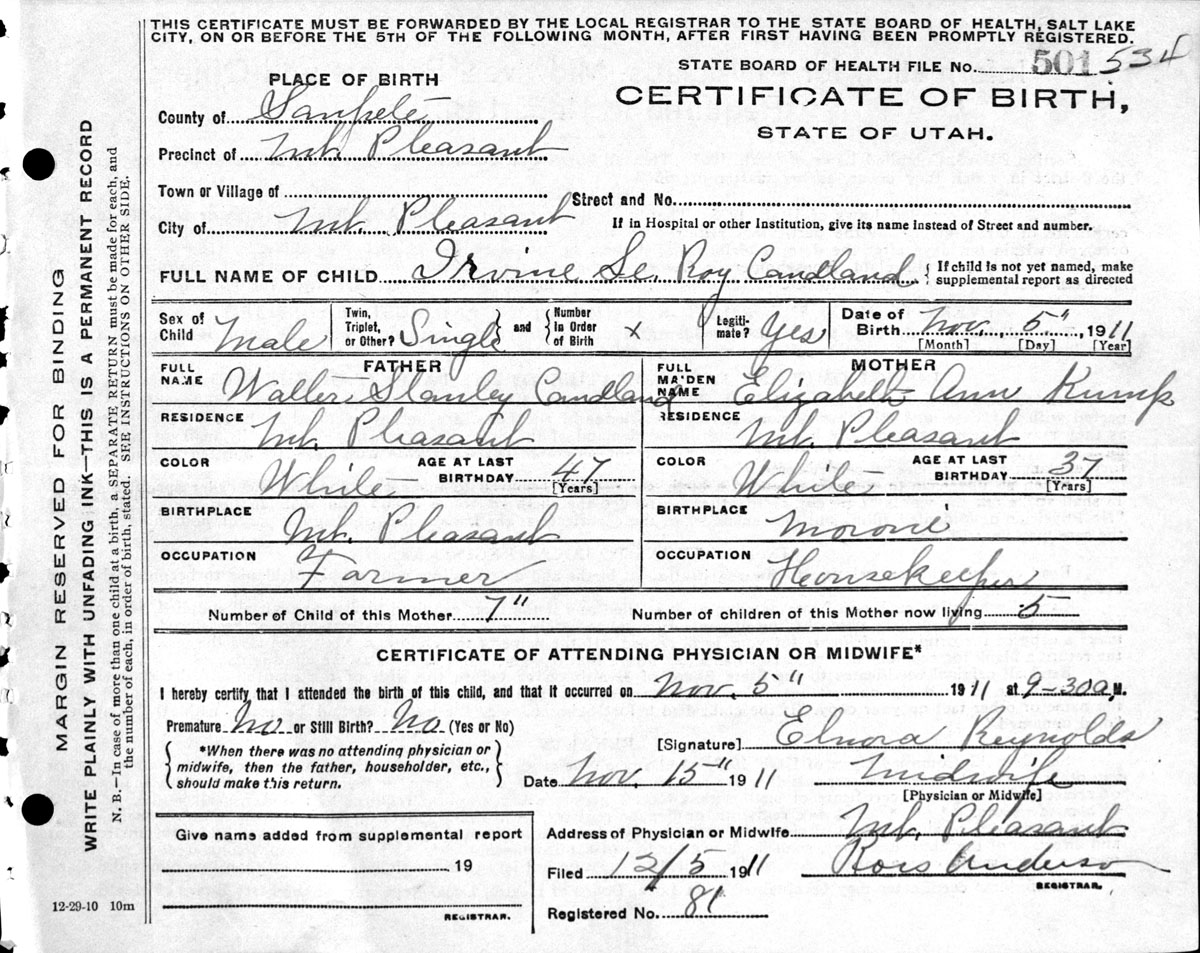 THIS CERTIFICATE MUST BE FORWARDED BY THE LOCAL REGISTRAR TO THE STATE BOARD OF HEALTH, SALT LAKE
CITY, ON OR BEFORE THE 5TH OF THE FOLLOWING MONTH, AFTER FIRST HAVING BEEN PROMPTLY REGISTERED.
STATE BOARD OF HEALTH FILE No. 501 534
PLACE OF BIRTH
CERTIFICATE OF BIRTH,
STATE OF UTAH.
County of Sanpete
Precinct of Mt. Pleasant
Town or Village of
Street and No.
City of Mt. Pleasant
If in Hospital or other Institution, give its name instead of Street and number.
FULL NAME OF CHILD Irvine Le. Roy Candland { If child is not yet named, make supplemental report as directed
Sex of Child Male Twin, Triplet, or Other? Single } and { Number in Order of Birth x Legitimate? Yes Date of Birth Nov. 5" 1911
[Month] [Day] [Year]
FATHER
MOTHER
FULL NAME Walter Stanley Candland
FULL MAIDEN NAME Elizabeth Ann Kump
RESIDENCE Mt. Pleasant
RESIDENCE Mt. Pleasant
COLOR White AGE AT LAST BIRTHDAY 47 [Years]
COLOR White AGE AT LAST BIRTHDAY 37 [Years]
BIRTHPLACE Mt. Pleasant
BIRTHPLACE Moroni
OCCUPATION Farmer
OCCUPATION Housekeeper
Number of Child of this Mother 7" Number of children of this Mother now living 5
CERTIFICATE OF ATTENDING PHYSICIAN OR MIDWIFE*
I hereby certify that I attended the birth of this child, and that it occurred on Nov. 5" 1911 at 9-30a M.
Premature No or Still Birth? No (Yes or No)
{ *When there was no attending physician or
midwife, then the father, householder, etc.,
should make this return. }
[Signature] Elnora Reynolds
Date Nov. 15" 1911 Midwife
[Physician or Midwife]
Give name added from supplemental report
19
REGISTRAR.
Address of Physician or Midwife Mt. Pleasant
Filed 12/5 1911 Anderson
REGISTRAR.
Registered No. 81
12-29-10 10m
MARGIN RESERVED FOR BINDING
WRITE PLAINLY WITH UNFADING INK—THIS IS A PERMANENT RECORD
N. B.—In case of more than one child at a birth, a SEPARATE RETURN must be made for each, and
the number of each, in order of birth, stated. SEE INSTRUCTIONS ON OTHER SIDE.